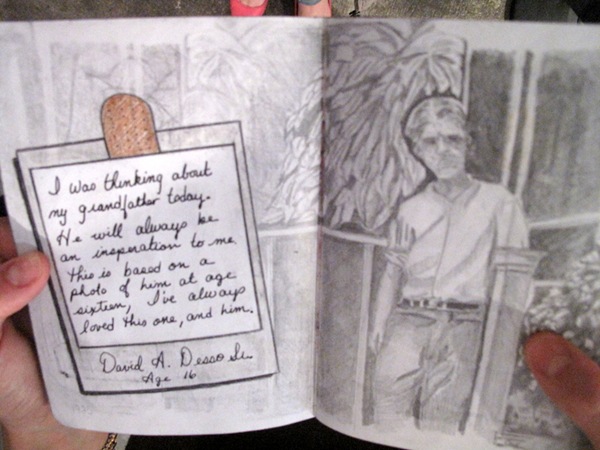 I was thinking about
my grandfather today.
He will always be
an insperation to me
this is based on a
photo of him at age
sixteen, I've always
loved this one, and him.
David A.
Age 16